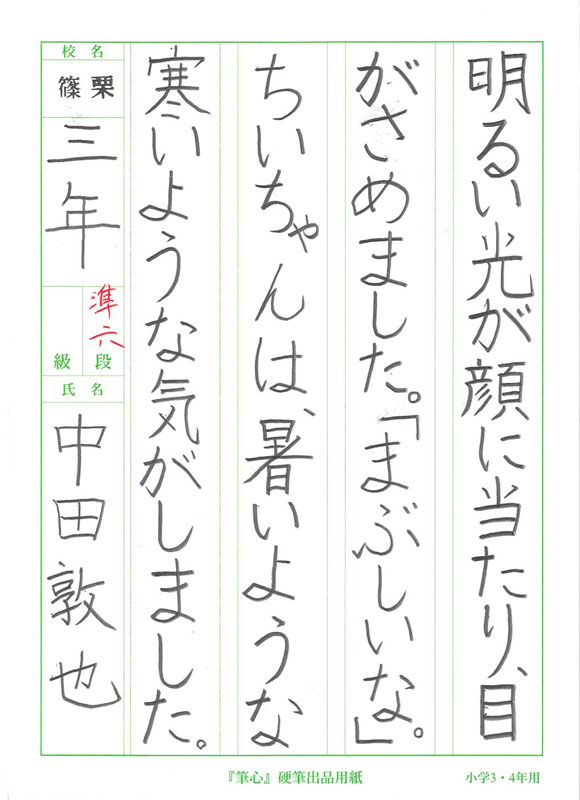 明るい光が顔に当たり、目
がさめました。「まぶしいな。」
ちいちゃんは、暑いような
寒いような気がしました。
校名
篠栗
三年
準六
級 段
氏名
中田敦也
『筆心』硬筆出品用紙
小学3・4年用